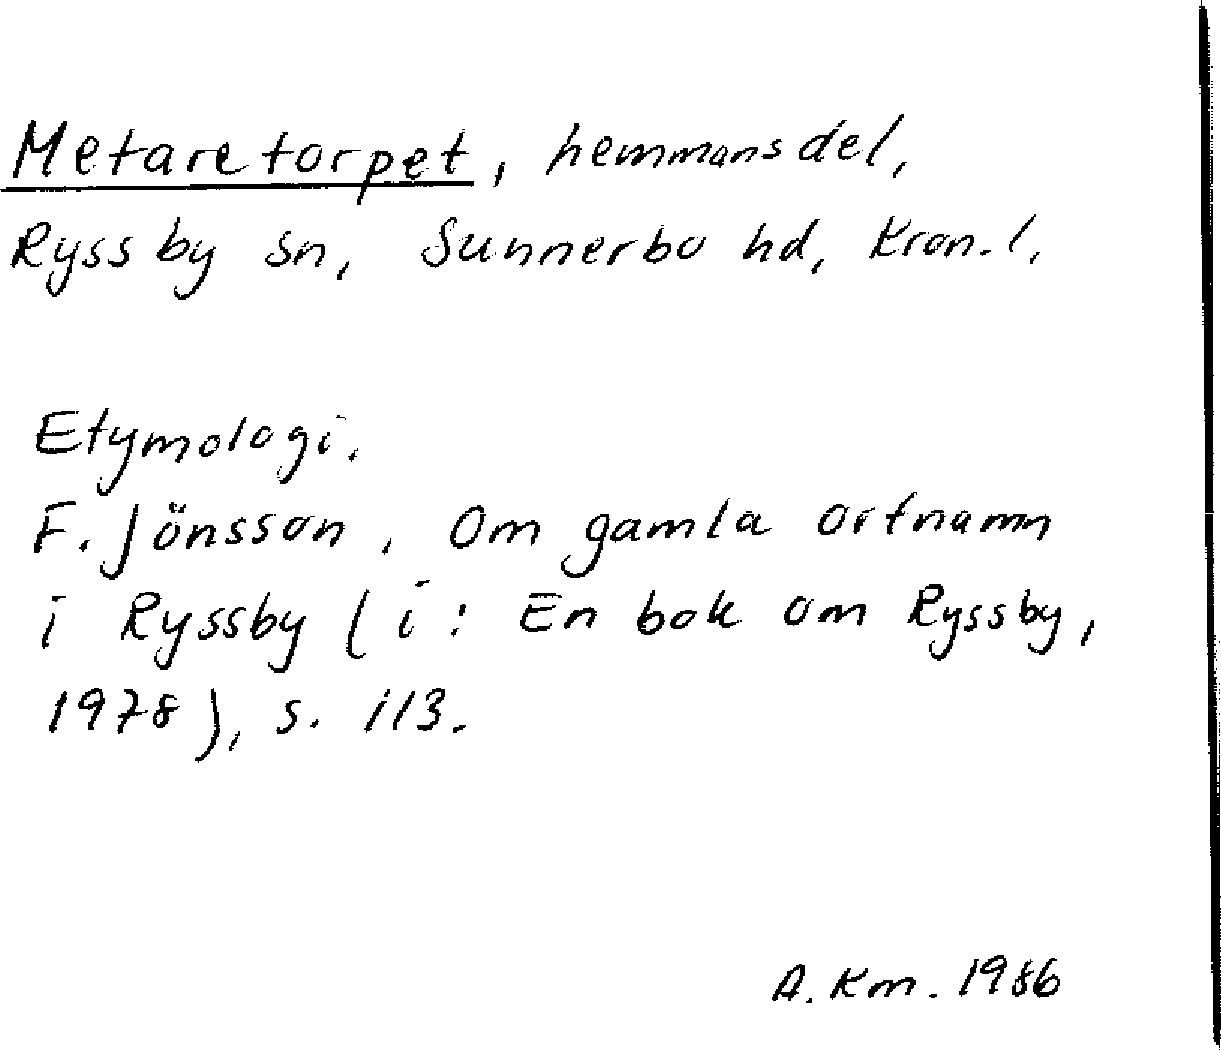 Metaretorpet, hemmansdel,
Ryssby sn, Sunnerbo hd, Kron.l.
Etymologi.
F. Jönsson, Om gamla ortnamn
i Ryssby (i: En bok om Ryssby,
1978), s. 113.
A. Km. 1986